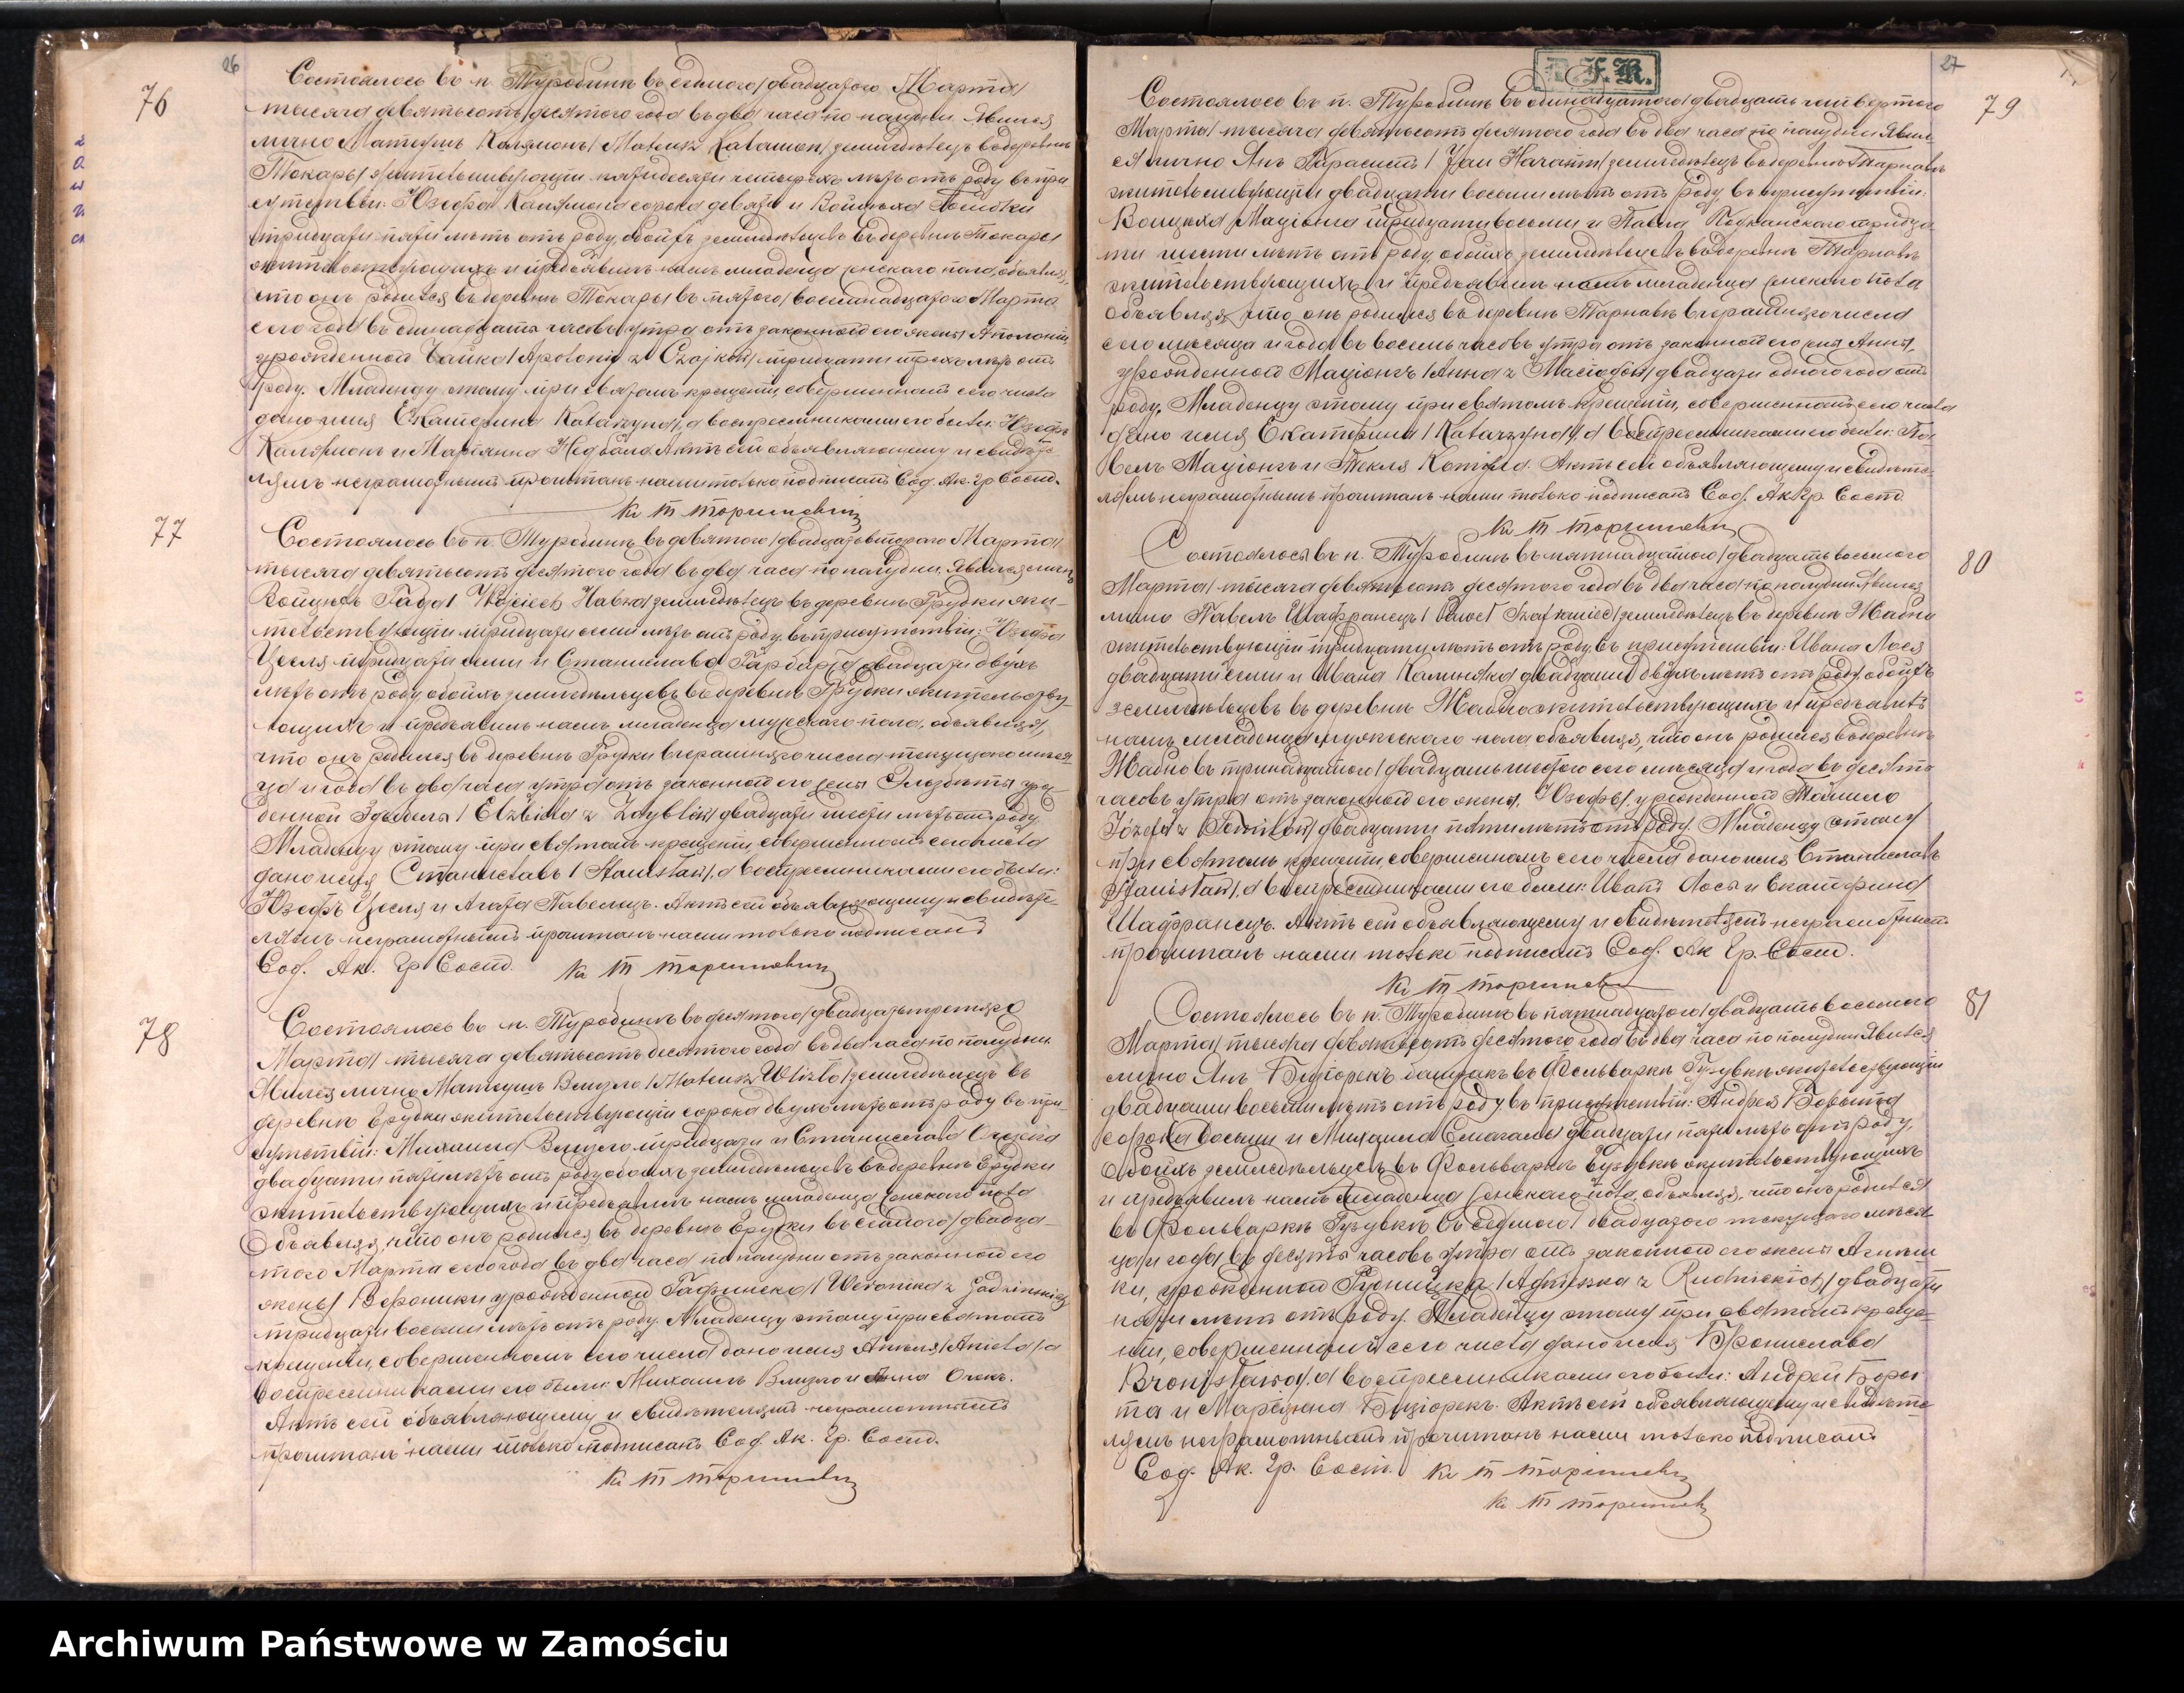 26
76
Состоялось въ п. Туробинѣ въ седьмого/двадцатого Марта/
тысяча девятьсотъ десятого года въ два часа по полудни. Явился
лично Матеушъ Калямонъ/Mateusz Kalamon/земледѣлецъ въ деревнѣ
Токары жительствующій пятидесяти четырехъ лѣтъ отъ роду, въ при
сутствіи: Юзефа Калямона сорока девяти и Войцѣха
тридцати пяти лѣтъ отъ роду, обоихъ земледѣльцевъ въ деревнѣ Токары
жительствующихъ и предъявилъ намъ младенца женскаго пола, объявляя,
что онъ родился въ деревнѣ Токары въ пятого/восемнадцатого Марта
сего года въ одинадцать часовъ утра отъ законной его жены Аполоніи,
урожденной Чайка/Apolonia z Czajków/тридцати трехъ лѣтъ отъ
роду. Младенцу этому при святомъ крещеніи, совершенномъ сего числа
дано имя Екатерина Katarzyna/, а воспреемниками его были: Юзефъ
Калямонъ и Маріянна Недбала. Актъ сей объявляющему и свидѣте
лямъ неграмотнымъ прочитанъ нами только подписанъ Сод. Ак. Гр. Сост.
77
Состоялось въ п. Туробинѣ въ девятого/двадцать второго Марта/
тысяча девятьсотъ десятого года въ два часа по полудни. Явился лично
Войцѣхъ /Wojciech земледѣлецъ въ деревнѣ Грудки жи-
тельствующій тридцати семи лѣтъ отъ роду, въ присутствіи: Юзефа
Цесля тридцати семи и Станислава двадцати двухъ
лѣтъ отъ роду обоихъ земледѣльцевъ въ деревнѣ Грудки жительству-
ющихъ и предъявилъ намъ младенца мужескаго пола, объявляя,
что онъ родился въ деревнѣ Грудки вчерашняго числа текущаго мѣся-
ца и года въ два часа утра отъ законной его жены Элжбѣты урож-
денной /Elżbieta z двадцати шести лѣтъ отъ роду.
Младенцу этому при святомъ крещеніи, совершенномъ сего числа
дано имя Станиславъ/Stanisław/, а воспреемниками его были:
Юзефъ Цесля и Агата Павелецъ. Актъ сей объявляющему и свидѣте-
лямъ неграмотнымъ прочитанъ нами только подписанъ
Сод. Ак. Гр. Сост.
78
Состоялось въ п. Туробинѣ въ десятого/двадцать третьяго
Марта/тысяча девятьсотъ десятого года въ два часа по полудни.
Явился лично Матеушъ Влизло/Mateusz Wlizło/земледѣлецъ въ
деревнѣ Грудки жительствующій сорока двухъ лѣтъ отъ роду въ при-
сутствіи: Михаила Влизло тридцати и Станислава
двадцати пяти лѣтъ отъ роду обоихъ земледѣльцевъ въ деревнѣ Грудки
жительствующихъ и предъявилъ намъ младенца женскаго пола
объявляя, что онъ родился въ деревнѣ Грудки въ седьмого/двадца-
того Марта сего года въ два часа по полудни отъ законной его
жены Вероники урожденной /Weronika z
тридцати восьми лѣтъ отъ роду. Младенцу этому при святомъ
крещеніи, совершенномъ сего числа дано имя Анеля/Aniela/, а
воспреемниками его были: Михаилъ Влизло и Анна
Актъ сей объявляющему и свидѣтелямъ неграмотнымъ
прочитанъ нами только подписанъ Сод. Ак. Гр. Сост.
27
F.R.
79
Состоялось въ п. Туробинѣ въ одинадцатого/двадцать четвертого
Марта/тысяча девятьсотъ десятого года въ два часа по полудни. Явил-
ся лично Янъ /Jan земледѣлецъ въ деревнѣ Тарнавѣ
жительствующій двадцати восьми лѣтъ отъ роду, въ присутствіи:
Войцѣха Маціона тридцати восьми и Павла тридца
ти шести лѣтъ отъ роду, обоихъ земледѣльцевъ въ деревнѣ Тарнавѣ
жительствующихъ и предъявилъ намъ младенца женскаго пола
объявляя, что онъ родился въ деревнѣ Тарнавѣ вчерашняго числа
сего мѣсяца и года въ восемь часовъ утра отъ законной его жены Анны,
урожденной Маціонгъ/Anna z двадцати одного года отъ
роду. Младенцу этому при святомъ крещеніи, совершенномъ сего числа
дано имя Екатерина/Katarzyna/, а воспреемниками его были: Па-
велъ Маціонгъ и Текля Актъ сей объявляющему и свидѣте-
лямъ неграмотнымъ прочитанъ нами только подписанъ Сод. Ак. Гр. Сост.
80
Состоялось въ п. Туробинѣ въ пятнадцатого/двадцать восьмого
Марта/тысяча девятьсотъ десятого года въ два часа по полудни. Явился
лично Павелъ Шафранецъ/Paweł Szafraniec/земледѣлецъ въ деревнѣ Жабно
жительствующій тридцати лѣтъ отъ роду, въ присутствіи: Ивана Лося
двадцати семи и Ивана Калиняка двадцати двухъ лѣтъ отъ роду, обоихъ
земледѣльцевъ въ деревнѣ Жабно жительствующихъ и предъявилъ
намъ младенца мужескаго пола объявляя, что онъ родился въ деревнѣ
Жабно въ тринадцатого/двадцать шестого сего мѣсяца и года въ десять
часовъ утра отъ законной его жены, Юзефы, урожденной Томило
Józefa z Tomiłów/двадцати пяти лѣтъ отъ роду. Младенцу этому
при святомъ крещеніи совершенномъ сего числа дано имя Станиславъ
Stanisław/, а воспреемниками его были: Иванъ Лось и Екатерина
Шафранецъ. Актъ сей объявляющему и свидѣтелямъ неграмотнымъ
прочитанъ нами только подписанъ Сод. Ак. Гр. Сост.
81
Состоялось въ п. Туробинѣ въ пятнадцатого/двадцать восьмого
Марта/тысяча девятьсотъ десятого года въ два часа по полудни. Явился
лично Янъ батракъ въ Фольваркѣ Гузувкѣ жительствующій
двадцати восьми лѣтъ отъ роду въ присутствіи: Андрея
сорока восьми и Михаила двадцати пяти лѣтъ отъ роду,
обоихъ земледѣльцевъ въ Фольваркѣ Гузувкѣ жительствующихъ
и предъявилъ намъ младенца женскаго пола, объявляя, что онъ родился
въ Фольваркѣ Гузувкѣ въ седьмого/двадцатого текущаго мѣся-
ца и года въ десять часовъ утра отъ законной его жены Агнѣш-
ки, урожденной Рудницка/Agnieszka z Rudnickich/двадцати
пяти лѣтъ отъ роду. Младенцу этому при святомъ креще-
ніи, совершенномъ сего числа дано имя Бронислава
Bronisława/, а воспреемниками его были: Андрей
и Маріянна Актъ сей объявляющему и свидѣте-
лямъ неграмотнымъ прочитанъ нами только подписанъ
Сод. Ак. Гр. Сост.
Archiwum Państwowe w Zamościu